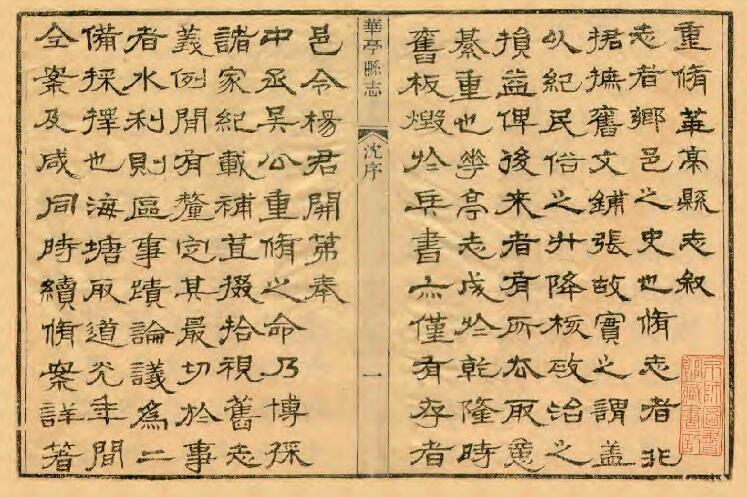 重脩華亭縣志敘
志者鄉邑之史也脩志者非
捃摭舊文鋪張故實之謂蓋
以紀民俗之升降核政治之
損益俾後來者有所厺取意
綦重也華亭志成於乾隆時
舊板燬於兵書亦僅有存者
華亭縣志
沈序
一
邑令楊君開第奉
中丞吳公重脩之命乃博採
諸家紀載補苴掇拾視舊志
義例閒有釐定其最切於事
者水利則區事蹟論議爲二
備採擇也海塘取道光年間
全案及咸同時續脩案詳著